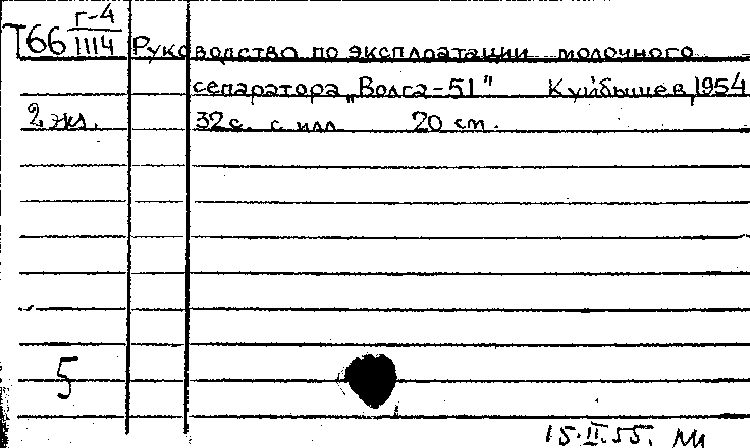 Г-4
Т66 1114 Руководство по эксплоатации молочного
сепаратора „Волга-51" Куйбышев, 1954
2 экз. 32 с. с илл. 20 см.
5
15.II.55.